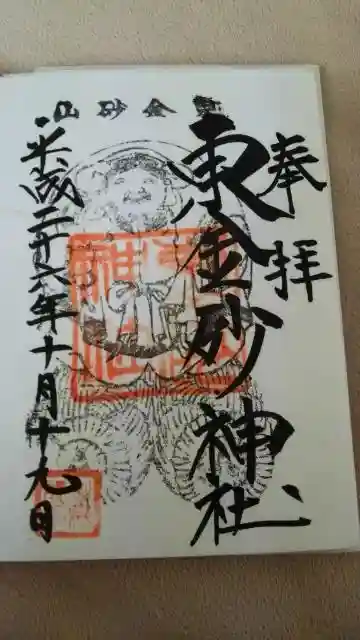 東金砂山
奉拝
東金砂神社
平成二十六年十月十九日